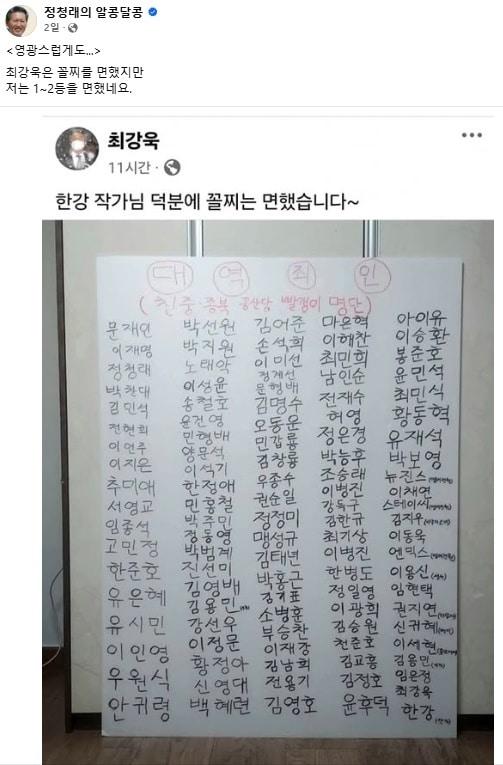 정청래의 알콩달콩
2일
<영광스럽게도...>
최강욱은 꼴찌를 면했지만
저는 1~2등을 면했네요.
최강욱
11시간
한강 작가님 덕분에 꼴찌는 면했습니다~
대 역 죄 인
(친중·종북 공산당 빨갱이 명단)
문재인
이재명
정청래
박찬대
김민석
전현희
이언주
이지은
추미애
서영교
임종석
고민정
한준호
유은혜
유시민
이인영
우원식
안귀령
박선원
박지원
노태악
이성윤
송철호
윤건영
민형배
양문석
이석기
한정애
민홍철
박주민
정동영
박범계
진선미
김영배
김용민
강선우
이정문
황정아
신영대
백혜련
김어준
손석희
이미선
정계선
문형배
김명수
오동운
민갑룡
김창룡
우종수
권순일
정정미
맹성규
김태년
박홍근
김기표
소병훈
부승찬
이재강
김남희
전용기
김영호
마은혁
이해찬
최민희
남인순
전재수
허영
정은경
박능후
조승래
이병진
강득구
김한규
최기상
이병진
한병도
정일영
이광희
김승원
천준호
김교흥
김정호
윤후덕
아이유
이승환
봉준호
윤민석
최민식
황동혁
유재석
박보영
뉴진스
이채연
스테이씨
김지우
이동욱
엔믹스
이용신
임현택
권지연
신귀혜
이세현
김용민
임은정
최강욱
한강